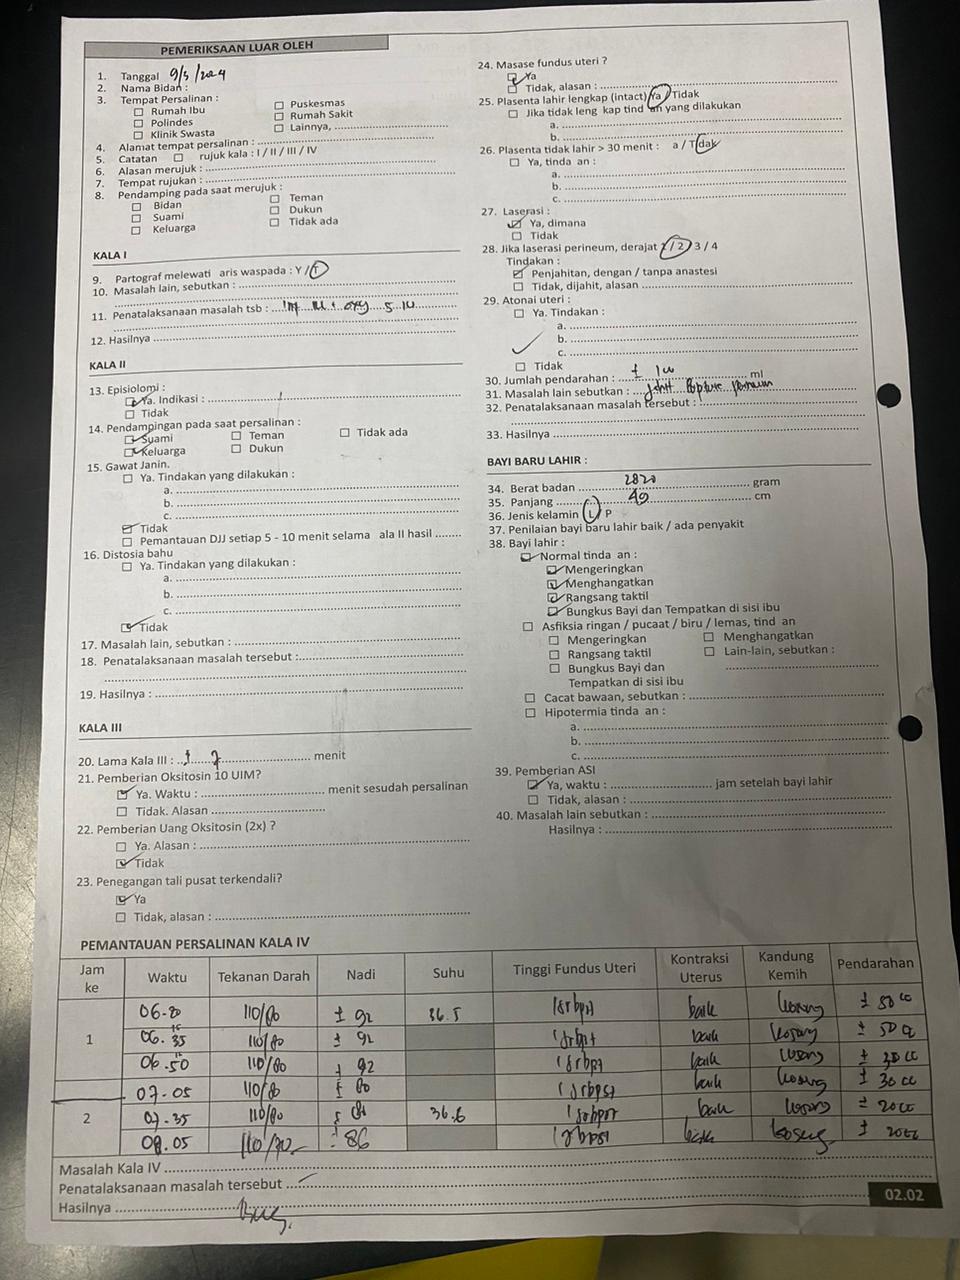 PEMERIKSAAN LUAR OLEH
1. Tanggal 9/5/2024
2. Nama Bidan :
3. Tempat Persalinan :
☐ Rumah Ibu ☐ Puskesmas
☐ Polindes ☐ Rumah Sakit
☐ Klinik Swasta ☐ Lainnya,
4. Alamat tempat persalinan :
5. Catatan ☐ rujuk kala : I / II / III / IV
6. Alasan merujuk :
7. Tempat rujukan :
8. Pendamping pada saat merujuk :
☐ Bidan ☐ Teman
☐ Suami ☐ Dukun
☐ Keluarga ☐ Tidak ada
KALA I
9. Partograf melewati aris waspada : Y / T
10. Masalah lain, sebutkan :
11. Penatalaksanaan masalah tsb : oxy 5 IU
12. Hasilnya
KALA II
13. Episiolomi :
☑ Ya. Indikasi :
☐ Tidak
14. Pendampingan pada saat persalinan :
☑ Suami ☐ Teman ☐ Tidak ada
☑ Keluarga ☐ Dukun
15. Gawat Janin.
☐ Ya. Tindakan yang dilakukan :
a.
b.
c.
☑ Tidak
☐ Pemantauan DJJ setiap 5 - 10 menit selama ala II hasil
16. Distosia bahu
☐ Ya. Tindakan yang dilakukan :
a.
b.
c.
☑ Tidak
17. Masalah lain, sebutkan :
18. Penatalaksanaan masalah tersebut :
19. Hasilnya :
KALA III
20. Lama Kala III : ± 7 menit
21. Pemberian Oksitosin 10 UIM?
☑ Ya. Waktu : menit sesudah persalinan
☐ Tidak. Alasan
22. Pemberian Uang Oksitosin (2x) ?
☐ Ya. Alasan :
☑ Tidak
23. Penegangan tali pusat terkendali?
☑ Ya
☐ Tidak, alasan :
24. Masase fundus uteri ?
☑ Ya
☐ Tidak, alasan :
25. Plasenta lahir lengkap (intact) Ya / Tidak
☐ Jika tidak leng kap tind an yang dilakukan
a.
b.
26. Plasenta tidak lahir > 30 menit : a / Tidak
☐ Ya, tinda an :
a.
b.
c.
27. Laserasi :
☑ Ya, dimana
☐ Tidak
28. Jika laserasi perineum, derajat 1 / 2 / 3 / 4
Tindakan :
☑ Penjahitan, dengan / tanpa anastesi
☐ Tidak, dijahit, alasan
29. Atonai uteri :
☐ Ya. Tindakan :
a.
b.
c.
☐ Tidak
30. Jumlah pendarahan : ± 100 ml
31. Masalah lain sebutkan : jahit Rupture perineum
32. Penatalaksanaan masalah tersebut :
33. Hasilnya
BAYI BARU LAHIR :
34. Berat badan 2820 gram
35. Panjang 49 cm
36. Jenis kelamin L / P
37. Penilaian bayi baru lahir baik / ada penyakit
38. Bayi lahir :
☑ Normal tinda an :
☑ Mengeringkan
☑ Menghangatkan
☑ Rangsang taktil
☑ Bungkus Bayi dan Tempatkan di sisi ibu
☐ Asfiksia ringan / pucaat / biru / lemas, tind an
☐ Mengeringkan ☐ Menghangatkan
☐ Rangsang taktil ☐ Lain-lain, sebutkan :
☐ Bungkus Bayi dan
Tempatkan di sisi ibu
☐ Cacat bawaan, sebutkan :
☐ Hipotermia tinda an :
a.
b.
c.
39. Pemberian ASI
☑ Ya, waktu : jam setelah bayi lahir
☐ Tidak, alasan :
40. Masalah lain sebutkan :
Hasilnya :
PEMANTAUAN PERSALINAN KALA IV
Jam ke Waktu Tekanan Darah Nadi Suhu Tinggi Fundus Uteri Kontraksi Uterus Kandung Kemih Pendarahan
1 06.20 110/80 ± 92 36.5 1 jrbpst baik kosong ± 50 cc
06.35 110/80 ± 92 1 jrbpst baik kosong ± 50 cc
06.50 110/80 ± 92 1 jrbpst baik kosong ± 30 cc
07.05 110/80 ± 80 1 jrbpst baik kosong ± 30 cc
2 07.35 110/80 36.6 1 jrbpst baik kosong ± 20 cc
08.05 110/70 ± 86 1 jrbpst baik kosong ± 20 cc
Masalah Kala IV
Penatalaksanaan masalah tersebut
Hasilnya
02.02